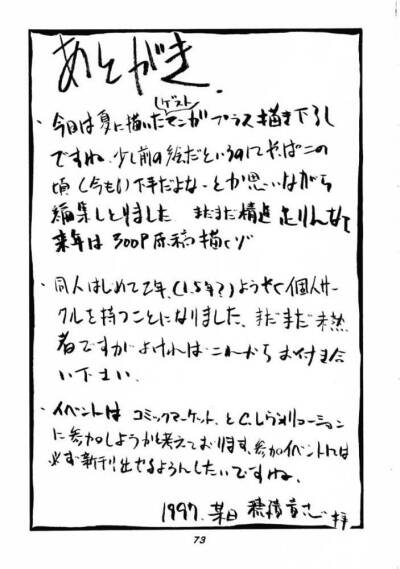 あとがき.
・今回は夏に描いたマンガプラス描き下ろし
(ゲスト)
ですね。少し前の絵だというのにやっぱこの
頃(今も)下手だよな~とか思いながら
編集しとりました まだまだ精進足りんなって
来年は300P原稿描くゾ
・同人はじめて2年、(1.5年?)ようやく個人サー
クルを持つことになりました、まだまだ未熟
者ですがよければこれからお付き合
い下さい.
・イベントは コミックマーケット、とC.レヴォリューション
に参加しようかと考えております、参加イベントには
必ず新刊出せるようにしたいですね.
1997. 某日 穂積 拝
73